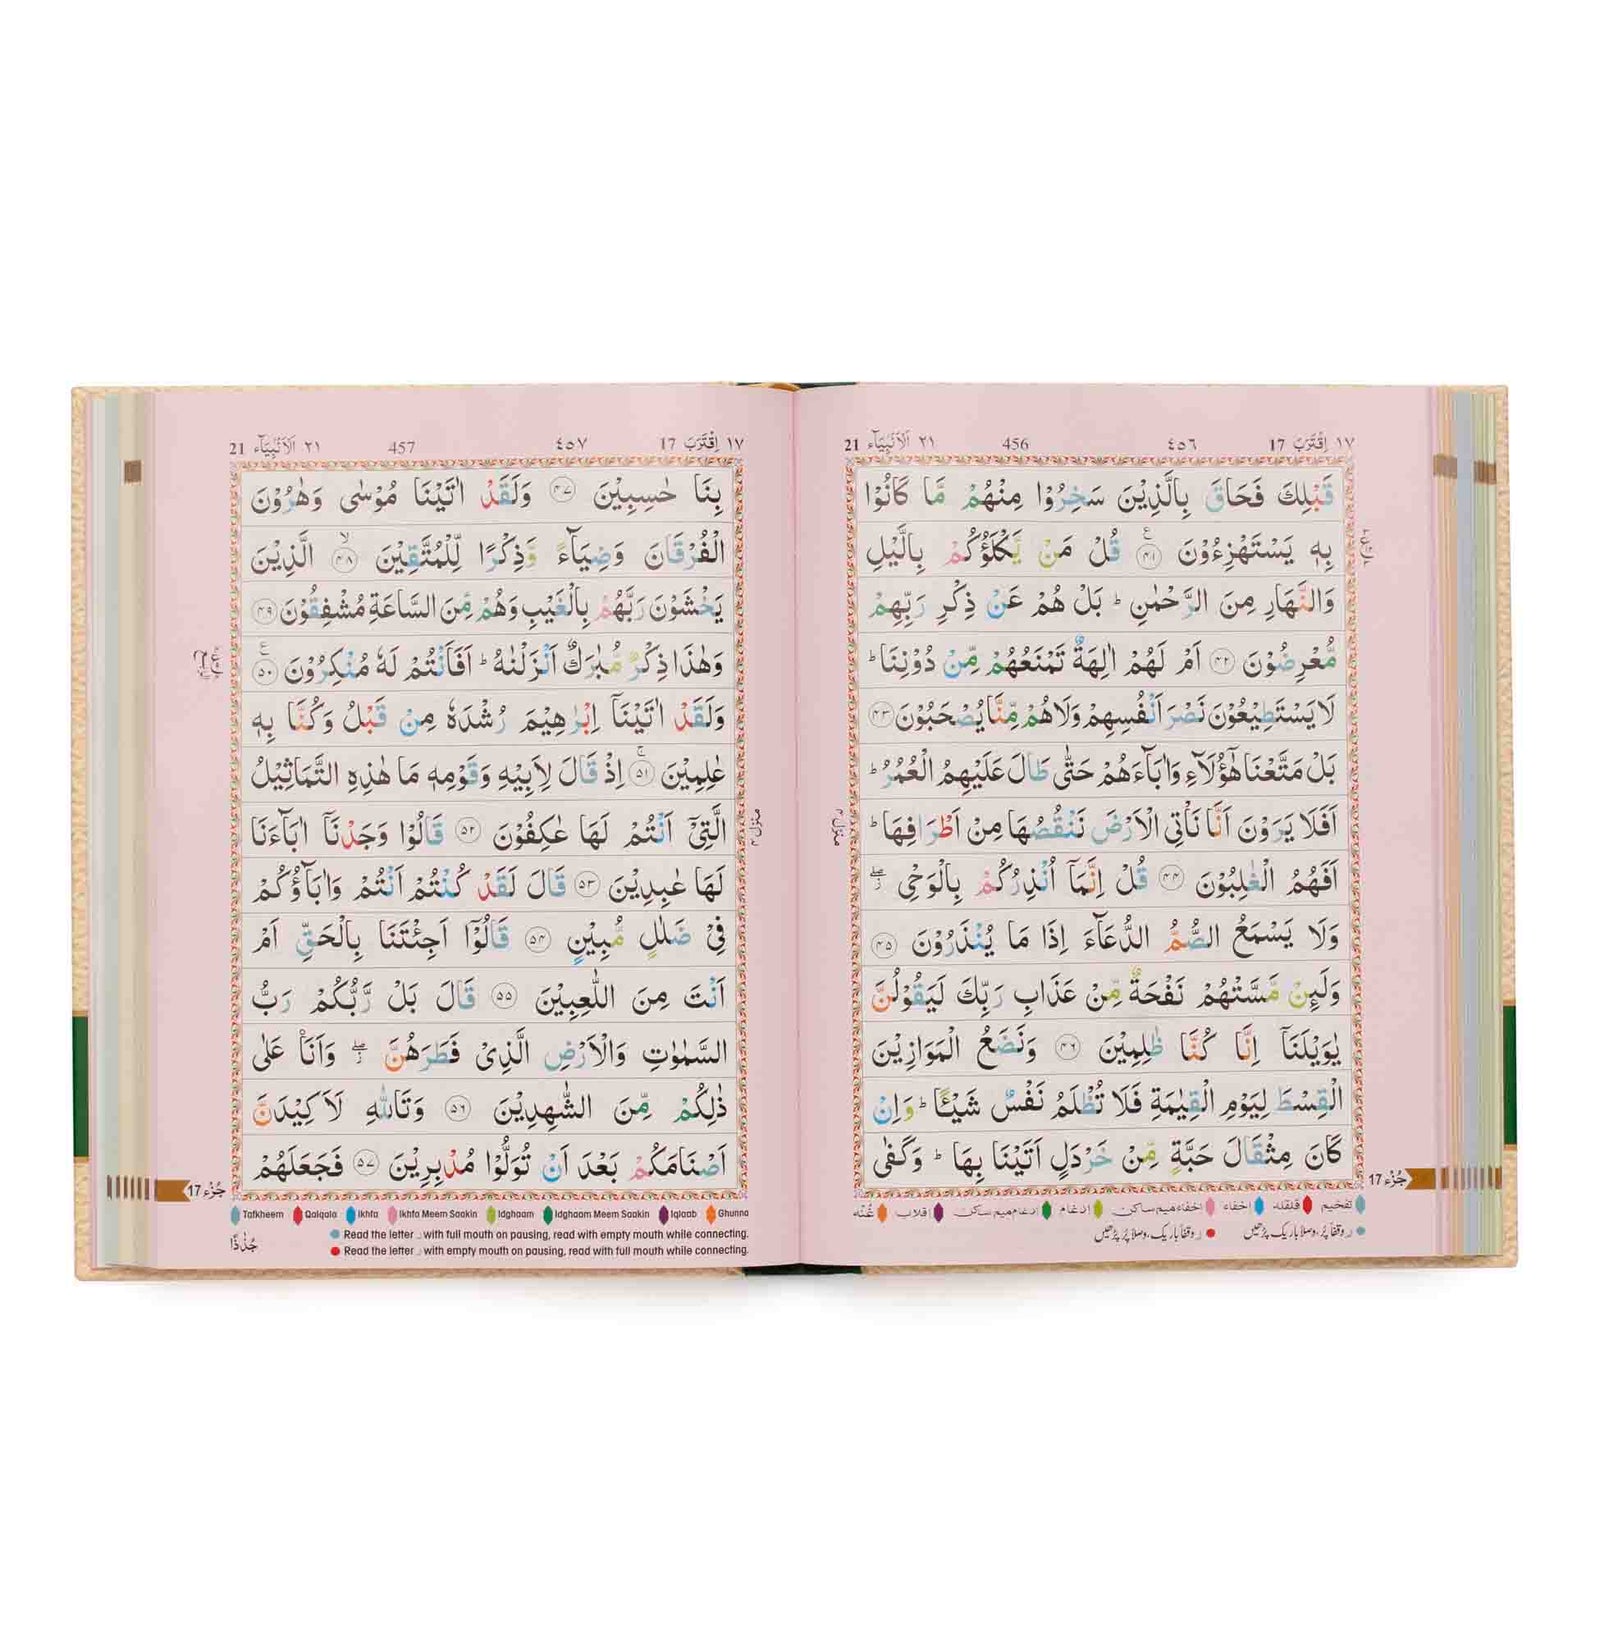 ١٧ اِقْتَرَبَ 17 ٤٥٦ 456 ٢١ اَلْاَنْۢبِيَآء 21
قَبْلِكَ فَحَاقَ بِالَّذِيْنَ سَخِرُوْا مِنْهُمْ مَّا كَانُوْا
بِهٖ يَسْتَهْزِءُوْنَ ۴۱ قُلْ مَنْ يَّكْلَؤُكُمْ بِالَّيْلِ
وَالنَّهَارِ مِنَ الرَّحْمٰنِ ؕ بَلْ هُمْ عَنْ ذِكْرِ رَبِّهِمْ
مُّعْرِضُوْنَ ۴۲ اَمْ لَهُمْ اٰلِهَةٌ تَمْنَعُهُمْ مِّنْ دُوْنِنَا ؕ
لَا يَسْتَطِيْعُوْنَ نَصْرَ اَنْفُسِهِمْ وَلَا هُمْ مِّنَّا يُصْحَبُوْنَ ۴۳
بَلْ مَتَّعْنَا هٰٓؤُلَآءِ وَاٰبَآءَهُمْ حَتّٰى طَالَ عَلَيْهِمُ الْعُمُرُ ؕ
اَفَلَا يَرَوْنَ اَنَّا نَاْتِى الْاَرْضَ نَنْقُصُهَا مِنْ اَطْرَافِهَا ؕ
اَفَهُمُ الْغٰلِبُوْنَ ۴۴ قُلْ اِنَّمَآ اُنْذِرُكُمْ بِالْوَحْىِ ۖز
وَلَا يَسْمَعُ الصُّمُّ الدُّعَآءَ اِذَا مَا يُنْذَرُوْنَ ۴۵
وَلَئِنْ مَّسَّتْهُمْ نَفْحَةٌ مِّنْ عَذَابِ رَبِّكَ لَيَقُوْلُنَّ
يٰوَيْلَنَآ اِنَّا كُنَّا ظٰلِمِيْنَ ۴۶ وَنَضَعُ الْمَوَازِيْنَ
الْقِسْطَ لِيَوْمِ الْقِيٰمَةِ فَلَا تُظْلَمُ نَفْسٌ شَيْـًٔا ؕ وَاِنْ
كَانَ مِثْقَالَ حَبَّةٍ مِّنْ خَرْدَلٍ اَتَيْنَا بِهَا ؕ وَكَفٰى
جُزْء 17
تفخیم قلقله اخفاء اخفاء میم ساکن ادغام ادغام میم ساکن اقلاب غُنّه
ر وقفاً پُر، وصلاً باریک پڑھیں ر وقفاً باریک، وصلاً پُر پڑھیں
١٧ اِقْتَرَبَ 17 ٤٥٧ 457 ٢١ اَلْاَنْۢبِيَآء 21
بِنَا حٰسِبِيْنَ ۴۷ وَلَقَدْ اٰتَيْنَا مُوْسٰى وَهٰرُوْنَ
الْفُرْقَانَ وَضِيَآءً وَّذِكْرًا لِّلْمُتَّقِيْنَ ۴۸ الَّذِيْنَ
يَخْشَوْنَ رَبَّهُمْ بِالْغَيْبِ وَهُمْ مِّنَ السَّاعَةِ مُشْفِقُوْنَ ۴۹
وَهٰذَا ذِكْرٌ مُّبٰرَكٌ اَنْزَلْنٰهُ ؕ اَفَاَنْتُمْ لَهٗ مُنْكِرُوْنَ ۵۰
وَلَقَدْ اٰتَيْنَآ اِبْرٰهِيْمَ رُشْدَهٗ مِنْ قَبْلُ وَكُنَّا بِهٖ
عٰلِمِيْنَ ۵۱ اِذْ قَالَ لِاَبِيْهِ وَقَوْمِهٖ مَا هٰذِهِ التَّمَاثِيْلُ
الَّتِىْٓ اَنْتُمْ لَهَا عٰكِفُوْنَ ۵۲ قَالُوْا وَجَدْنَآ اٰبَآءَنَا
لَهَا عٰبِدِيْنَ ۵۳ قَالَ لَقَدْ كُنْتُمْ اَنْتُمْ وَاٰبَآؤُكُمْ
فِىْ ضَلٰلٍ مُّبِيْنٍ ۵۴ قَالُوْٓا اَجِئْتَنَا بِالْحَقِّ اَمْ
اَنْتَ مِنَ اللّٰعِبِيْنَ ۵۵ قَالَ بَلْ رَّبُّكُمْ رَبُّ
السَّمٰوٰتِ وَالْاَرْضِ الَّذِىْ فَطَرَهُنَّ ۖز وَاَنَا عَلٰى
ذٰلِكُمْ مِّنَ الشّٰهِدِيْنَ ۵۶ وَتَاللّٰهِ لَاَكِيْدَنَّ
اَصْنَامَكُمْ بَعْدَ اَنْ تُوَلُّوْا مُدْبِرِيْنَ ۵۷ فَجَعَلَهُمْ
جُزْء 17
Tafkheem Qalqala Ikhfa Ikhfa Meem Saakin Idghaam Idghaam Meem Saakin Iqlaab Ghunna
Read the letter ر with full mouth on pausing, read with empty mouth while connecting.
Read the letter ر with empty mouth on pausing, read with full mouth while connecting.
جُذٰذًا
منزل ۴
منزل ۴